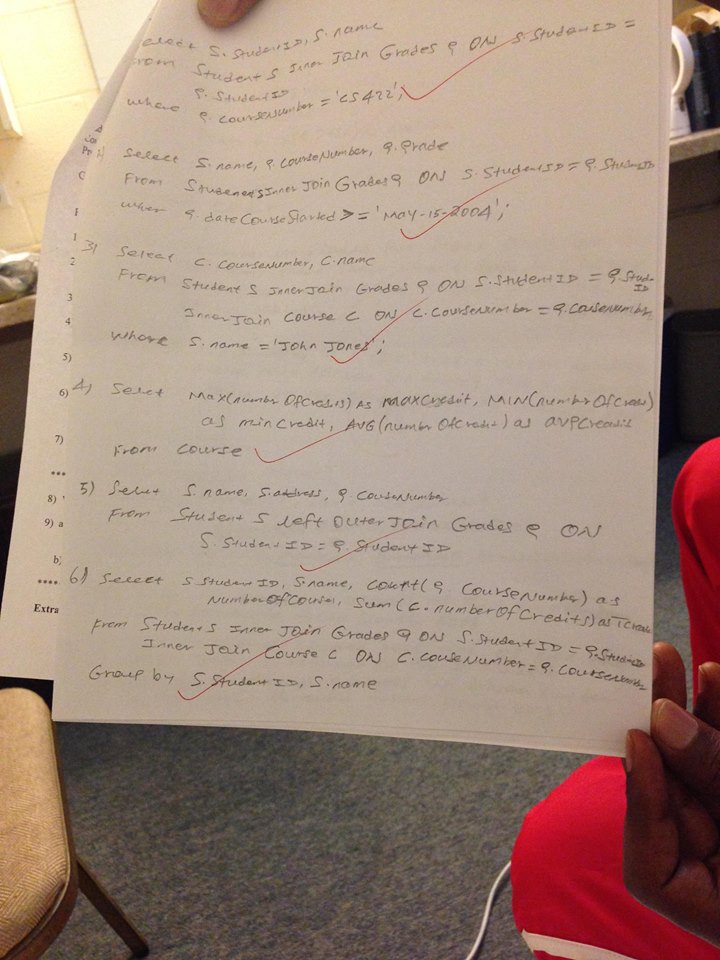 elect S.StudentID, S.name
From Student S Inner Join Grades g ON S.StudentID =
g.StudentID
where g.courseNumber = 'CS422';
Select S.name, g courseNumber, g.grade
From Student S Inner Join Grades g ON S.StudentID = g.StudentID
wher g.dateCourseStarted >= 'May-15-2004';
3) Select C.CourseNumber, C.name
From Student S InnerJoin Grades g ON S.StudentID = g.Stud-
ID
InnerJoin Course C ON C.CourseNumber = g.CouseNumber
where S.name = 'John Jones';
4) Select Max(number OfCredits) As maxCredit, MIN(number OfCredi)
as minCredit, AVG(number OfCredit) as avgCreadit
From Course
5) Select S.name, S.address, g CourseNumber
From Student S left Outer Join Grades g ON
S.StudentID = g.StudentID
6) Select S StudentID, S.name, Count(g.CourseNumber) as
NumberOfCourse, Sum(C.numberOfCredits) as
From Student S Inner Join Grades g ON S.StudentID = g.StudentID
Inner Join Course C ON C.couseNumber = g.CourseNumber
Group by S.StudentID, S.name
1
2
3
4
5)
6)
7)
***
8)
9) a
b)
****
Extra